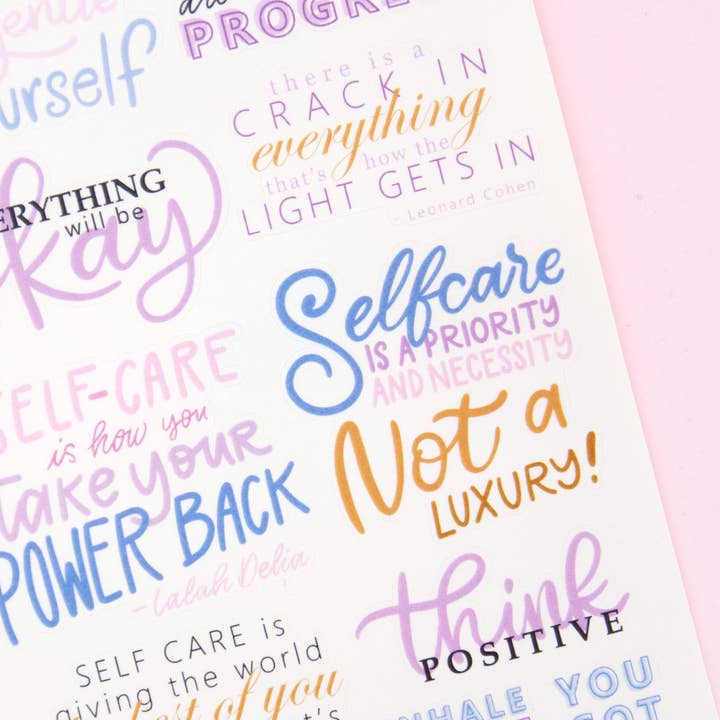 PROGRE
there is a
CRACK IN
everything
that's how the
LIGHT GETS IN
- Leonard Cohen
ERYTHING
will be
kay
Selfcare
IS A PRIORITY
AND NECESSITY
Not a
LUXURY!
SELF-CARE
is how you
take your
POWER BACK
- Lalah Delia
think
POSITIVE
SELF CARE is
giving the world
best of you
NHALE YOU